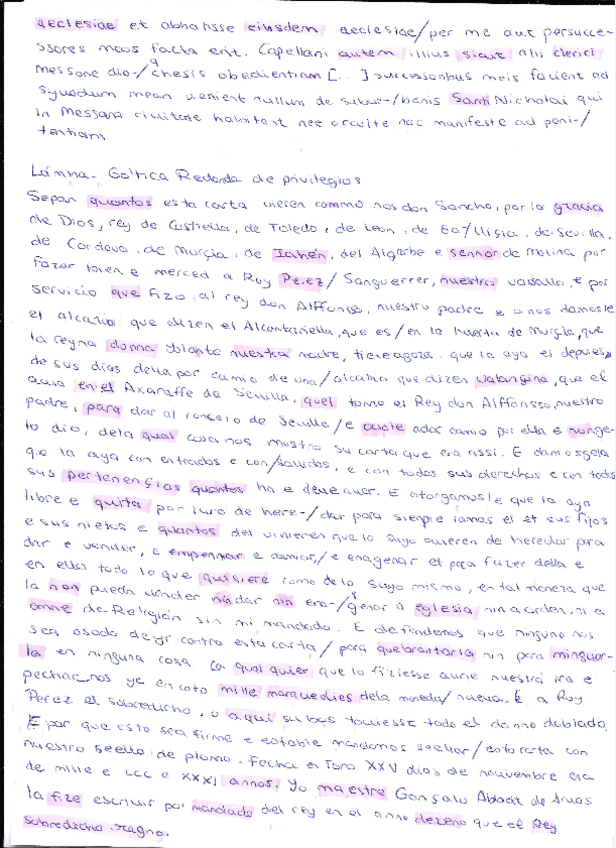 aeclesiae et abbatisse eiusdem aeclesiae/per me aut persucce-
ssores meos facta erit. Capellani autem illius sicut alii clerici
messane dio-/chesis obedientiam [...] successoribus meis facient ad
synodum meam uenient nullum de subur-/banis Santi Nicholai qui
in Messana ciuitate habitant nec occulte nec manifeste ad peni-/
tentiam
Lámina- Gótica Redonda de privilegios
Sepan quantos esta carta uieren commo nos don Sancho, por la gracia
de Dios, rey de Castiella, de Toledo, de Leon, de Ga/llizia, de Sevilla,
de Cordova, de Murçia, de Iahén, del Algarbe e sennor de Molina por
fazer bien e merced a Roy Perez/ Sanguerrer, nuestro vasallo, e por
servicio que fizo al rey don Alffonso, nuestro padre e a nos damosle
el alcaria que dizen el Alcantariella, que es/en la huerta de Murçia, que
la reyna donna Yolante nuestra madre, tiene agora. que la aya el depues
de sus dias della por camio de una/alcaria que dizen ualangina, que el
auia en el Axaraffe de Seuilla, quel tomo el Rey don Alffonsso, nuestro
padre, para dar al conceio de Seuilla/e ouole a dar camio por ella e nonge-
lo dio, dela qual cosa nos mostro su carta que era assi. E damosgela
que la aya con entradas e con/salidas, e con todos sus derechos e con todas
sus pertenençias quantas ha e deue auer. E otorgamusle que la aya
libre e quita por iuro de here-/dat para siempre iamas el et sus fijos
e sus nietos e quantos del vinieren que lo suyo ouieren de heredar para
dar e uender, e empennar e camiar,/e enagenar et para fazer della e
en ella todo lo que quisiere como delo suyo mismo, en tal manera que
la non pueda uender nin dar nin ena-/genar a eglesia nin a orden, ni a
omne de Religion sin mi mandado. E defendemos que ninguno nos
sea osado de yr contra esta carta/ para quebrantarla nin para minguar-
la en ninguna cosa. Ca qual quier que lo fiziesse aurie nuestra ira e
pecharnos ye en coto mille marauedies dela moneda/ nueua. E a Roy
Perez el sobredicho, o a qui su boz touiesse todo el danno doblado.
E por que esto sea firme e estable mandamos seellar/ esta carta con
nuestro seello de plomo. Fecha en Toro XXV dias de nouiembre era
de mille e CCC e XXXI annos. Yo maestre Gonsalo Abbat de Aruas
la fize escriuir por mandado del rey en el anno dezeno que el Rey
sobredicho regno.